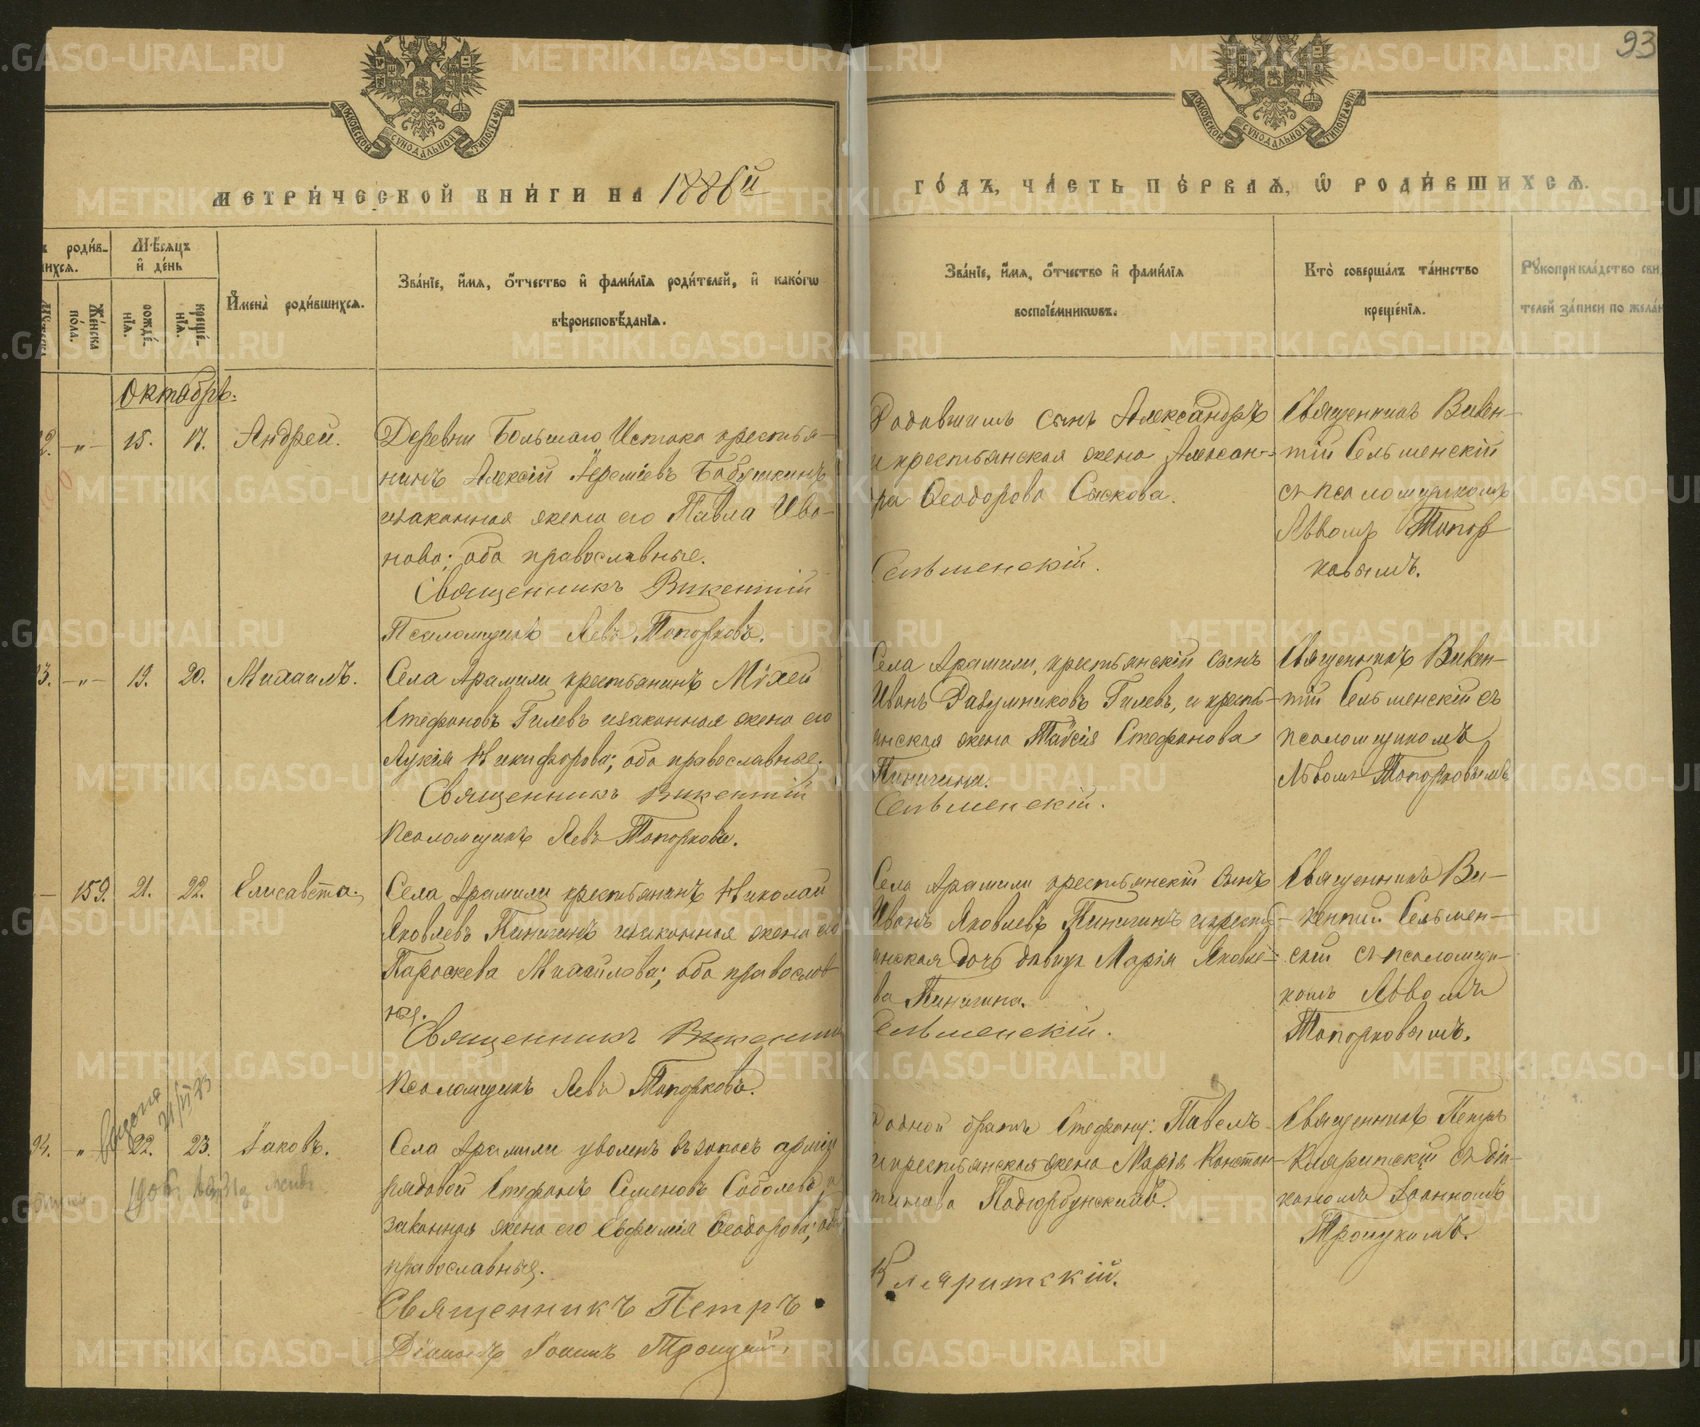 93
МЕТРИ́ЧЕСКОЙ КНИ́ГИ НА 1886й
ГО́ДЪ, ЧА́СТЬ ПЕ́РВАѦ, Ѡ҆ РОДИ́ВШИХСѦ.
роди́в-
шихсѧ.
Мѣ́сѧцъ
и҆ де́нь
Же́нска
по́ла.
рожде́-
нїѧ.
креще́-
нїѧ.
И҆мена̀ роди́вшихсѧ.
Зва́нїе, и҆́мѧ, ѻ҆́тчество и҆ фами́лїѧ роди́телей, и҆ како́гѡ
вѣроисповѣ́данїѧ.
Зва́нїе, и҆́мѧ, ѻ҆́тчество и҆ фами́лїѧ
воспрїе́мникѡвъ.
Кто̀ соверша́лъ та́инство
креще́нїѧ.
Рꙋкоприкла́дство сви
телей за́писи по жела́н
Октябрь.
-"- 15. 17. Андрей.
Деревни Большаго Истока крестья-
нинъ Алексій Іереміевъ Бабушкинъ
и законная жена его Павла Ива-
нова; оба православные.
Священникъ Викентій
Псаломщикъ Левъ Топорковъ.
сынъ Александръ
и крестьянская жена Алексан-
ра Ѳеодорова Сыскова.
Сельменскій.
Священникъ Викен-
тій Сельменскій
съ псаломщикомъ
Львомъ Топор
ковымъ.
3. -"- 19. 20. Михаилъ.
Села Арамили крестьянинъ Міхей
Стефановъ Гилевъ и законная жена его
Лукія Никифорова; оба православные.
Священникъ Викентій
Псаломщикъ Левъ Топорковъ.
Села Арамили, крестьянскій сынъ
Иванъ Гилевъ, и кресть-
янская жена Таисія Стефанова
Пинигина.
Сельменскій.
Священникъ Викен-
тій Сельменскій съ
псаломщикомъ
Львомъ Топорковымъ
- 159. 21. 22. Елисавета.
Села Арамили крестьянинъ Николай
Яковлевъ Пинигинъ и законная жена его
Параскева Михайлова; оба православ
ные.
Священникъ Викентій
Псаломщикъ Левъ Топорковъ.
Села Арамили крестьянскій сынъ
Иванъ Яковлевъ Пинигинъ и кресть
янская дочь девица Марія Яковле-
ва Пинигина.
Сельменскій.
Священникъ Ви-
кентій Сельмен-
скій съ псаломщи-
комъ Львомъ
Топорковымъ.
Выдана
94. " 22. 23. Іаковъ.
Села Арамили уволенъ въ запасъ арміи
рядовой Стефанъ Семеновъ Соболевъ и
законная жена его Евфимія Ѳеодорова; оба
православные.
Священникъ Петръ
Діаконъ Іоаннъ Троицкій.
Родной братъ Стефану: Павелъ
и крестьянская жена Марія Констан-
тинова
Кляритскій.
Священникъ Петръ
Кляритскій съ діа-
кономъ Іоанномъ
Троицкимъ.
METRIKI.GASO-URAL.RU